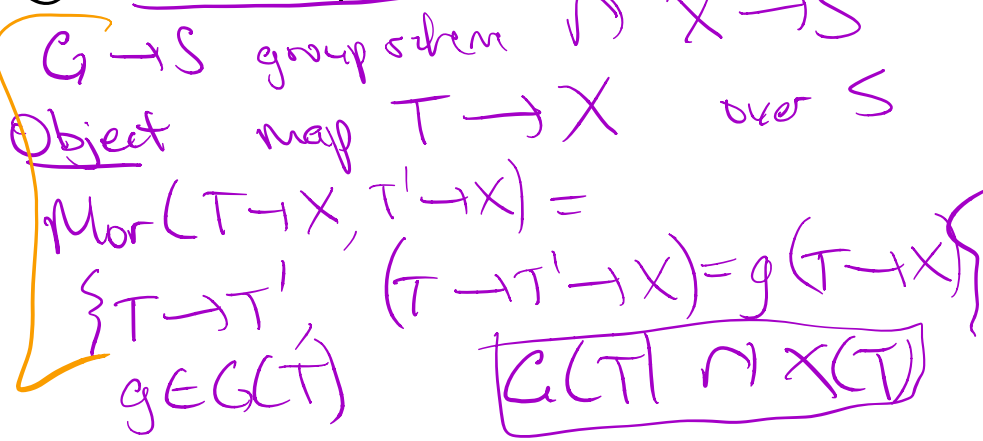 G → S group scheme ↷ X → S
Object map T → X over S
Mor(T → X, T' → X) =
{T → T', (T → T' → X) = g(T → X)}
g ∈ G(T) G(T) ↷ X(T)